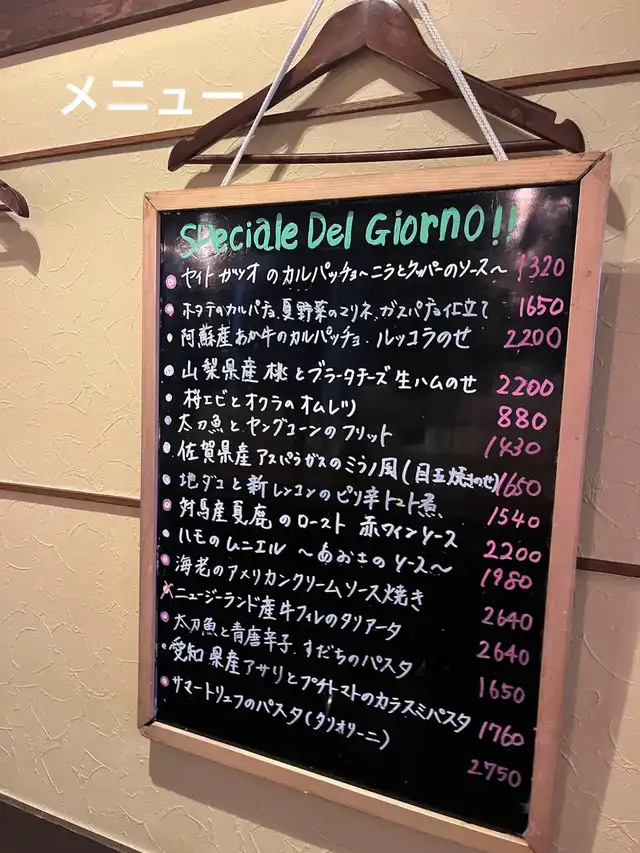 メニュー
Speciale Del Giorno!!
ヤイトガツオのカルパッチョ~ニラとケッパーのソース~ 1320
ホタテのカルパチョ、夏野菜のマリネ、ガスパチョ仕立て 1650
阿蘇産あか牛のカルパッチョ ルッコラのせ 2200
山梨県産桃とブラータチーズ生ハムのせ 2200
桜エビとオクラのオムレツ 880
太刀魚とヤングコーンのフリット 1430
佐賀県産アスパラガスのミラノ風(目玉焼きのせ) 1650
地ダコと新レンコンのピリ辛トマト煮 1540
対馬産夏鹿のロースト 赤ワインソース 2200
ハモのムニエル ~あおさのソース~ 1980
海老のアメリカンクリームソース焼き 2640
ニュージーランド産牛フィレのタリアータ 2640
太刀魚と青唐辛子、すだちのパスタ 1650
愛知県産アサリとプチトマトのカラスミパスタ 1760
サマートリュフのパスタ(タリオリーニ) 2750